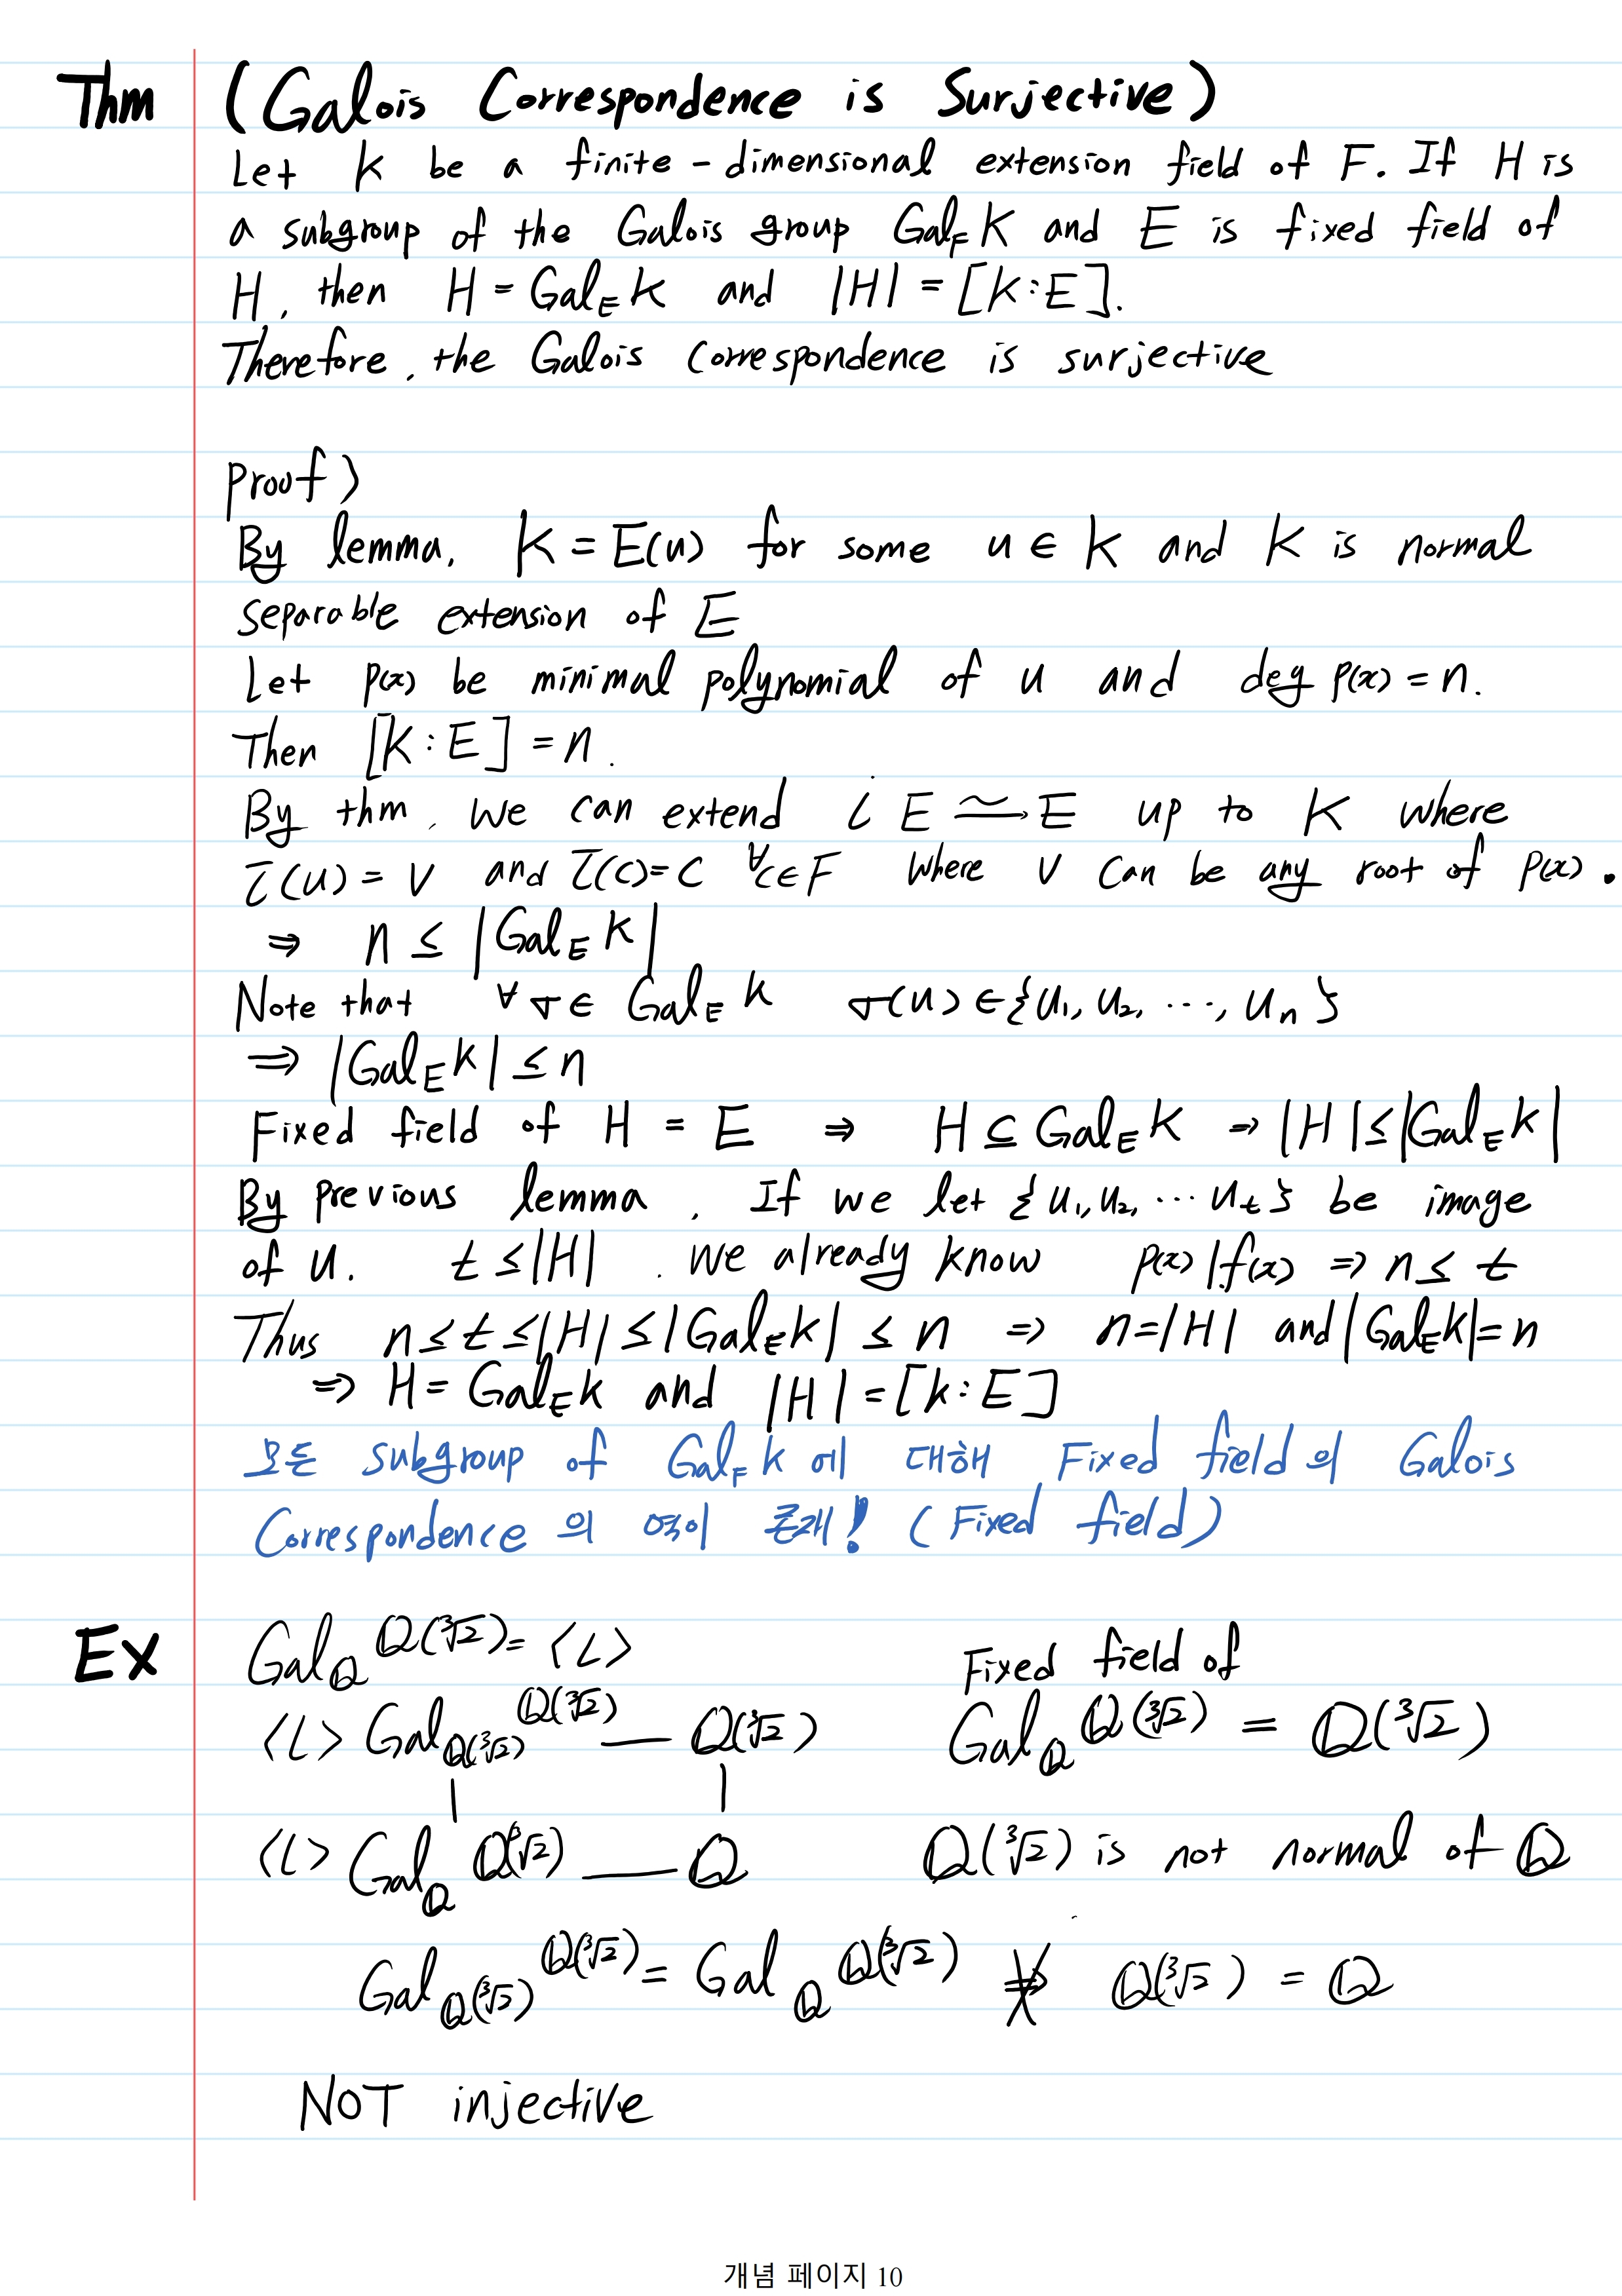 Thm (Galois Correspondence is Surjective)
Let K be a finite-dimensional extension field of F. If H is
a subgroup of the Galois group Gal_F K and E is fixed field of
H, then H = Gal_E K and |H| = [K:E].
Therefore, the Galois correspondence is surjective
Proof>
By lemma, K = E(u) for some u ∈ K and K is normal
separable extension of E
Let p(x) be minimal polynomial of u and deg p(x) = n.
Then [K:E] = n.
By thm, we can extend i E ⥲ E up to K where
τ(u) = v and τ(c)=c ∀c∈F where v can be any root of p(x).
⇒ n ≤ |Gal_E K|
Note that ∀σ ∈ Gal_E K σ(u) ∈ {u₁, u₂, ⋯, uₙ}
⇒ |Gal_E K| ≤ n
Fixed field of H = E ⇒ H ⊆ Gal_E K ⇒ |H| ≤ |Gal_E K|
By previous lemma, If we let {u₁, u₂, ⋯ u_t} be image
of u. t ≤ |H|. We already know p(x) | f(x) ⇒ n ≤ t
Thus n ≤ t ≤ |H| ≤ |Gal_E K| ≤ n ⇒ n=|H| and |Gal_E K|=n
⇒ H = Gal_E K and |H| = [K:E]
모든 subgroup of Gal_F K 에 대해 Fixed field 의 Galois
Correspondence 의 역이 존재! (Fixed field)
Ex Gal_ℚ ℚ(∛2) = ⟨ι⟩ Fixed field of
⟨ι⟩ Gal_ℚ(∛2) ℚ(∛2) — ℚ(∛2) Gal_ℚ ℚ(∛2) = ℚ(∛2)
| |
⟨ι⟩ Gal_ℚ ℚ(∛2) — ℚ ℚ(∛2) is not normal of ℚ
Gal_ℚ(∛2) ℚ(∛2) = Gal_ℚ ℚ(∛2) ⇏ ℚ(∛2) = ℚ
NOT injective
개념 페이지 10